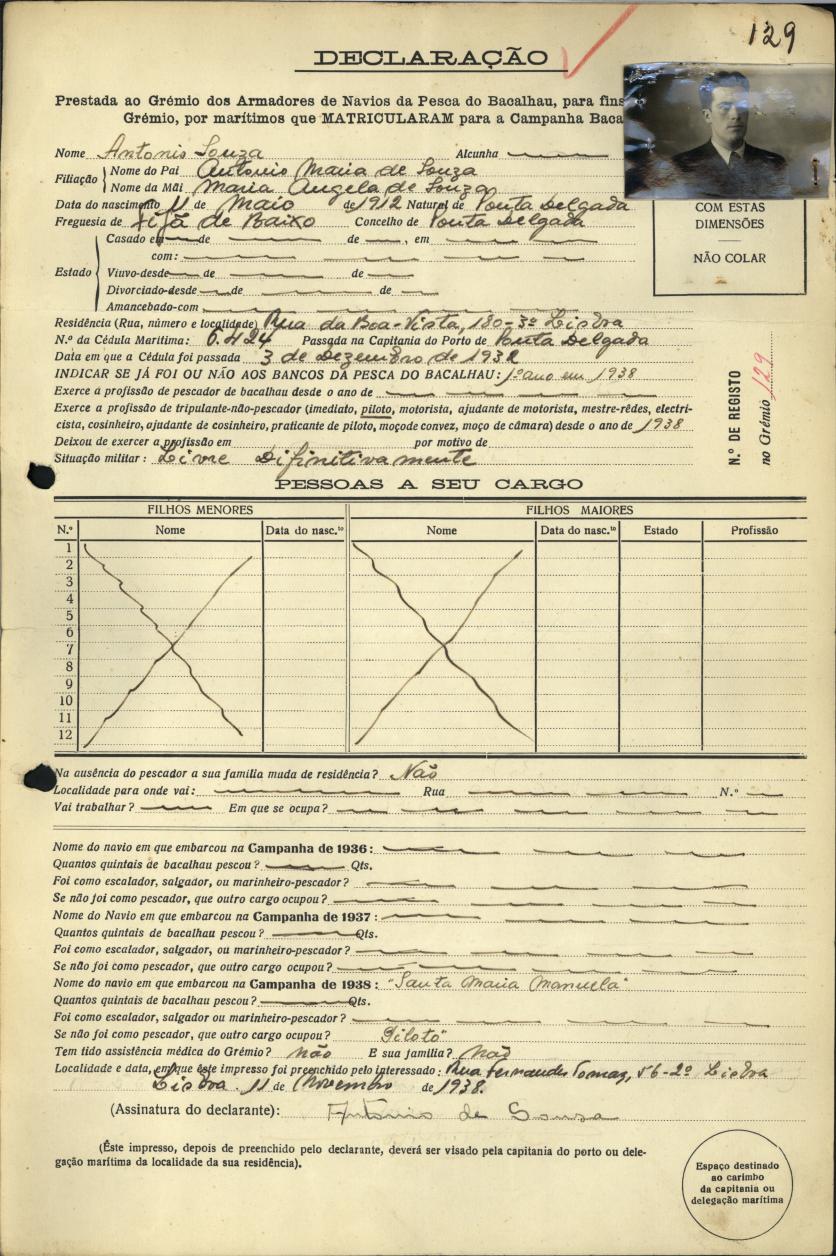 129
DECLARAÇÃO
Prestada ao Grémio dos Armadores de Navios da Pesca do Bacalhau, para fins
Grémio, por marítimos que MATRICULARAM para a Campanha Baca
Nome Antonio Souza Alcunha
Filiação Nome do Pai Antonio Maria de Souza
Nome da Mãi Maria Angela de Souza
Data do nascimento 11 de Maio de 1912 Natural de Ponta Delgada
Freguesia de Fijã de Baixo Concelho de Ponta Delgada
COM ESTAS
DIMENSÕES
NÃO COLAR
Casado em de de , em
com:
Estado Viuvo-desde de de
Divorciado-desde de de
Amancebado-com
Residência (Rua, número e localidade) Rua da Boa-Vista, 180-3º Lisboa
N.º da Cédula Marítima: 6.424 Passada na Capitania do Porto de Ponta Delgada
Data em que a Cédula foi passada 3 de Dezembro de 1932
INDICAR SE JÁ FOI OU NÃO AOS BANCOS DA PESCA DO BACALHAU: 1º ano em 1938
Exerce a profissão de pescador de bacalhau desde o ano de
Exerce a profissão de tripulante-não-pescador (imediato, piloto, motorista, ajudante de motorista, mestre-rêdes, electri-
cista, cosinheiro, ajudante de cosinheiro, praticante de piloto, moço de convez, moço de câmara) desde o ano de 1938
Deixou de exercer a profissão em por motivo de
Situação militar: Livre Difinitivamente
N.º DE REGISTO
no Grémio 129
PESSOAS A SEU CARGO
FILHOS MENORES FILHOS MAIORES
N.º Nome Data do nasc.to Nome Data do nasc.to Estado Profissão
1
2
3
4
5
6
7
8
9
10
11
12
Na ausência do pescador a sua família muda de residência? Não
Localidade para onde vai: Rua N.º
Vai trabalhar? Em que se ocupa?
Nome do navio em que embarcou na Campanha de 1936:
Quantos quintais de bacalhau pescou? Qts.
Foi como escalador, salgador, ou marinheiro-pescador?
Se não foi como pescador, que outro cargo ocupou?
Nome do Navio em que embarcou na Campanha de 1937:
Quantos quintais de bacalhau pescou? Qts.
Foi como escalador, salgador, ou marinheiro-pescador?
Se não foi como pescador, que outro cargo ocupou?
Nome do navio em que embarcou na Campanha de 1938: "Santa Maria Manuela"
Quantos quintais de bacalhau pescou? Qts.
Foi como escalador, salgador ou marinheiro-pescador?
Se não foi como pescador, que outro cargo ocupou? Piloto"
Tem tido assistência médica do Grémio? não E sua família? não
Localidade e data, em que êste impresso foi preenchido pelo interessado: Rua Fernandes Tomaz, 56-2º Lisboa
Lisboa. 11 de Novembro de 1938.
(Assinatura do declarante): Antonio de Souza
(Êste impresso, depois de preenchido pelo declarante, deverá ser visado pela capitania do porto ou dele-
gação marítima da localidade da sua residência).
Espaço destinado
ao carimbo
da capitania ou
delegação marítima